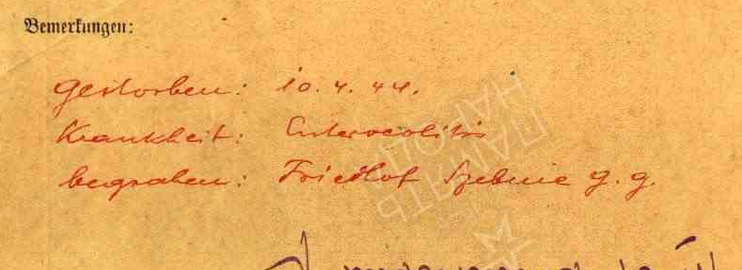 Bemerkungen:
gestorben: 10. 4. 44.
Krankheit: Enterocolitis
begraben: Friedhof Szebnie g. g.
ПАМЯТЬ
НАРОДА